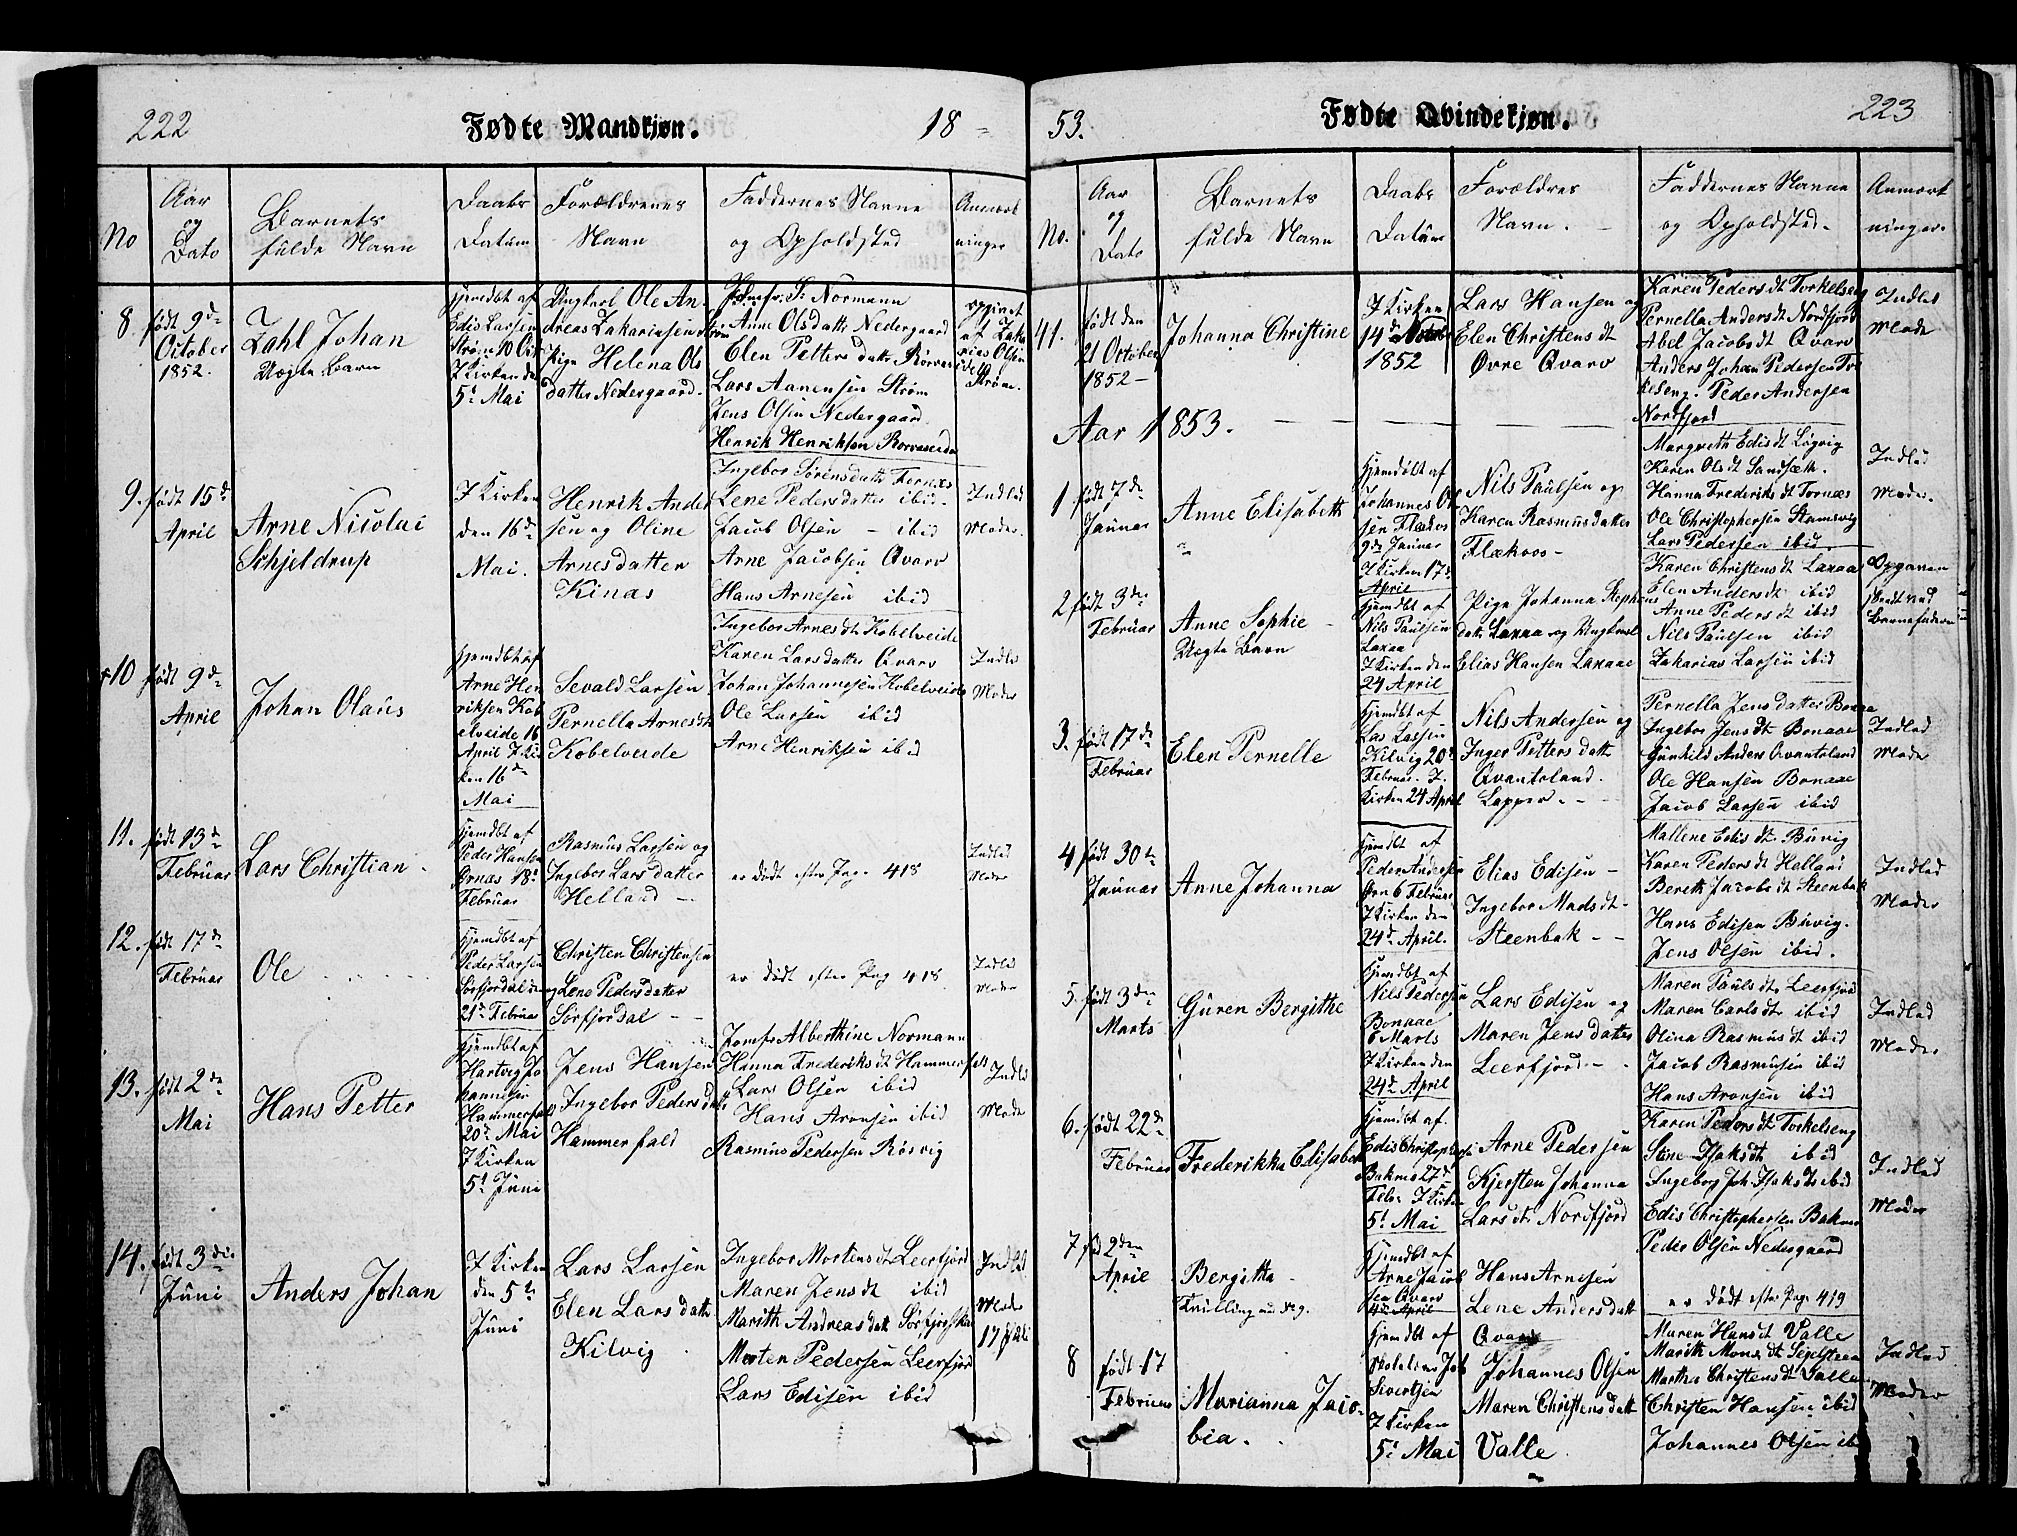 222
Fødte Mandkjøn.
18
No
Aar
og
Dato
Barnets
fulde Navn
Daabs
Datum
Forældrenes
Navn
Faddernes Navne
og Opholdsted
Anmærk
ninger
8. født 9de
October
1852.
Zahl Johan
Uægte Barn
hjemdbt af
Edis Larsen
Strøm 10 Oct
I Kirken den
5te Mai
Ungkarl Ole An-
dreas Zakariasen Strøm
Pige Helena Ols
datter Nedergaard.
Jomfr. S. Normann
Anne Olsdattr Nedergaard
Elen Petters dattr Rørvas
Lars Aanensen Strøm
Jens Olsen Nedergaard.
Henrik Henriksen
opgivet
af Zaka
rias Olsen
Strøm.
9. født 15de
April
Arne Nicolai
Schjeldrup
I Kirken
den 16de
Mai.
Henrik Ander
sen og Oline
Arnesdatter
Kinas
Ingebor Sørensdattr Fornæs
Lene Pedersdatter ibid
Jacob Olsen - ibid
Arne Jacobsen Qvarv
Hans Arnesen ibid
Indlad
Moder.
10 født 9de
April
Johan Olaus
hjemdbt af
Arne Hen
riksen Kob
elveide 16
April I Kir
ken 16de
Mai
Sevald Larsen
Pernella Arnesdt
Kobelveide
Ingebor Arnesdt Kobelveide
Karen Larsdatter Qvarv
Johan Johannesen Kobelveide
Ole Larsen ibid
Arne Henriksen ibid
Indlad
Moder
11. født 13de
Februar
Lars Christian
hjemdbt af
Peder Hansen
Ornæs 18de
Februar
Rasmus Larsen og
Ingebor Lars datter
Helland -
er dødt efter Pag. 418
Indlad
Moder
12. født 17de
Februar
Ole
hjemdbt af
Peder Larsen
Sørfjordal
21de Februar
Christen Christensen
og Lene Peders datter
Sørfjordal -
er dødt efter Pag 418.
Indlad
Moder
13. født 2den
Mai
Hans Petter
hjemdbt af
Hartvig Jo
hannesen
Hammerfald
20de Mai
I Kirken
5te Juni
Jens Hansen
Ingebor Peders datt
Hammerfald
Jomfr Alberthine Normann
Hanna Frederiksdt Hammerfald
Lars Olsen ibid
Hans Aronsen ibid
Rasmus Pedersen Røsvig
Indlad
Moder
14. født 3die
Juni
Anders Johan
I Kirken
den 5te
Juni
Lars Larsen
Elen Lars datt
Kilvig
Ingebor Mortens dt Leerfjord
Maren Jensdt ibid
Marith Andreas datt
Morten Pedersen Leerfjord
Lars Edisen ibid
Indlad
Moder
53.
Fødte Qvindekjøn.
223
No.
Aar
og
Dato
Barnets
fulde Navn
Daabs
Datum
Forældres
Navn.
Faddernes Navne
og Opholdsted.
Anmærk
ninger.
41. født den
21 October
1852 -
Johanna Christine
I Kirken
14de
1852
Lars Hansen og
Elen Christens dt
Øvre Qvarv
Karen Peders dt Torkelseng
Pernella Anders dt Nordfjord
Abel Jacobsdt Qvarv
Anders Johan Pedersen Tor
kelseng. Peder Andersen
Nordfjord
Indlad
Moder
Aar 1853.
1 født 7de
Januar
Anne Elisabeth
hjemdøbt af
Johannes Ol
sen Flækos
9de Januar
I Kirken 17de
April
Nils Paulsen og
Karen Rasmusdatter
Flækoos -
Margreth Edis dt Løgvig
Karen Ols dt Sandsæth.
Hanna Frederiks dt Tornæs
Ole Christophersen Stamsvig
Lars Pedersen ibid.
Indlad
Moder.
2 født 3den
Februar
Anne Sophie
Uægte Barn
hjemdbt af
Nils Paulsen
Laxaa
I Kirken den
24 April
Pige Johanna Stephens
datt. Laxaa og Ungkarl
Elias Hansen Laxaae
Karen Christens dt Laxaa
Elen Anders dt ibid
Anne Peders dt ibid
Nils Paulsen ibid
Zakarias Larsen ibid
Barnefaderen
3. født 17de
Februar
Elen Pernelle
hjemdbt af
Las Lassen
Kilvig 20de
Februar. I
Kirken 24 April
Nils Andersen og
Inger Petters datt
Qvantoland.
Lapper.
Pernella Jens datter Bonaae
Ingebor Jensdt Bonaae
Gunhild Anders Qvantoland
Ole Hansen Bonaae
Jacob Larsen ibid
Indlad
Moder
4 født 30te
Januar
Anne Johanna
hjemdbt af
Peder Andersen
6 Februar
I Kirken den
24de April.
Elias Edisen -
Ingebor Mads dt
Steenbak -
Mallene Edis dt. Buvig
Karen Peders dt Helland
Bereth Jacobs dt Steenbak
Hans Edisen Buvig.
Jens Olsen ibid.
Indlad
Moder
5. født 3den
Marts
Guren Bergithe
hjemdbt af
Nils Pedersen
Bonaae
6 Marts
I Kirken den
24de April
Lars Edisen og
Maren Jens datter
Leerfjord -
Maren Pauls dt Leerfjord
Maren Carls dt ibid
Olina Rasmus dt ibid
Jacob Rasmusen ibid
Hans Aronsen ibid
Indlad
Moder
6. født 22de
Februar
Frederikka Elisabet
hjemdbt af.
Edis Christophersen
Bakmo 27de
Febr I Kirken
5te Mai
Arne Pedersen
Kjersten Johanna
Lars dt Nordfjord
Karen Peders dt Torkelseng
Stine Isaksdt ibid
Ingeborg Joh. Isaks dt ibid
Edis Christophersen Bakmo
Peder Olsen Nedergaard
Indlad
Moder
7 fød 2den
April
Bergitha
Tvilling
hjemdbt af
Arne Jacob
sen Qvarv
April
Hans Arnesen
Lene Anders datt
Qvarv
er dødt efter Pag. 419
8 født 17
Februar
Marianna Jaco-
bia.
hjemdbt af
Skoleldrer Job
Sivertsen
I Kirken
5te Mai
Johannes Olsen
Maren Christens datt
Valle
Maren Hans dt Valle
Marith Mons dt Segelsteen
Marthe Christens dt Valle
Christen Hansen ibid
Johannes Olsen ib
Indlad
Moder